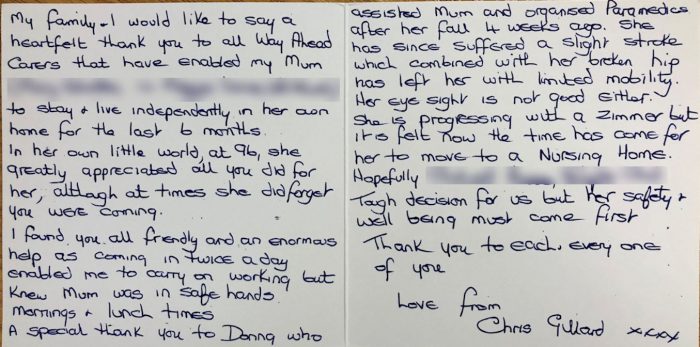 My family + I would like to say a
heartfelt thank you to all Way Ahead
Carers that have enabled my Mum
to stay + live independently in her own
home for the last 6 months.
In her own little world, at 96, she
greatly appreciated all you did for
her, althagh at times she did forget
you were coming.
I found you all friendly and an enormous
help as coming in twice a day
enabled me to carry on working but
knew Mum was in safe hands
mornings + lunch times
A special thank you to Donna who
assisted Mum and organised Paramedics
after her fall 4 weeks ago. She
has since suffered a slight stroke
which combined with her broken hip
has left her with limited mobility.
Her eye sight is not good either.
She is progressing with a Zimmer but
it is felt now the time has come for
her to move to a Nursing Home.
Hopefully
Tough decision for us but her safety +
well being must come first
Thank you to each, every one
of you
Love from
Chris Gillard xxxx